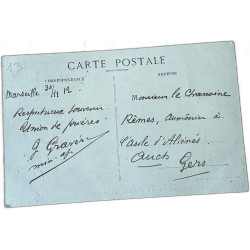 CARTE POSTALE
CORRESPONDANCE
ADRESSE
Marseille 30/11 12
Respectueux souvenir
Union de prières
J Gravier
mis. ap.
Monsieur le Chanoine
Rèmes, Aumônier à
l'asile d'Aliénés
Auch
Gers